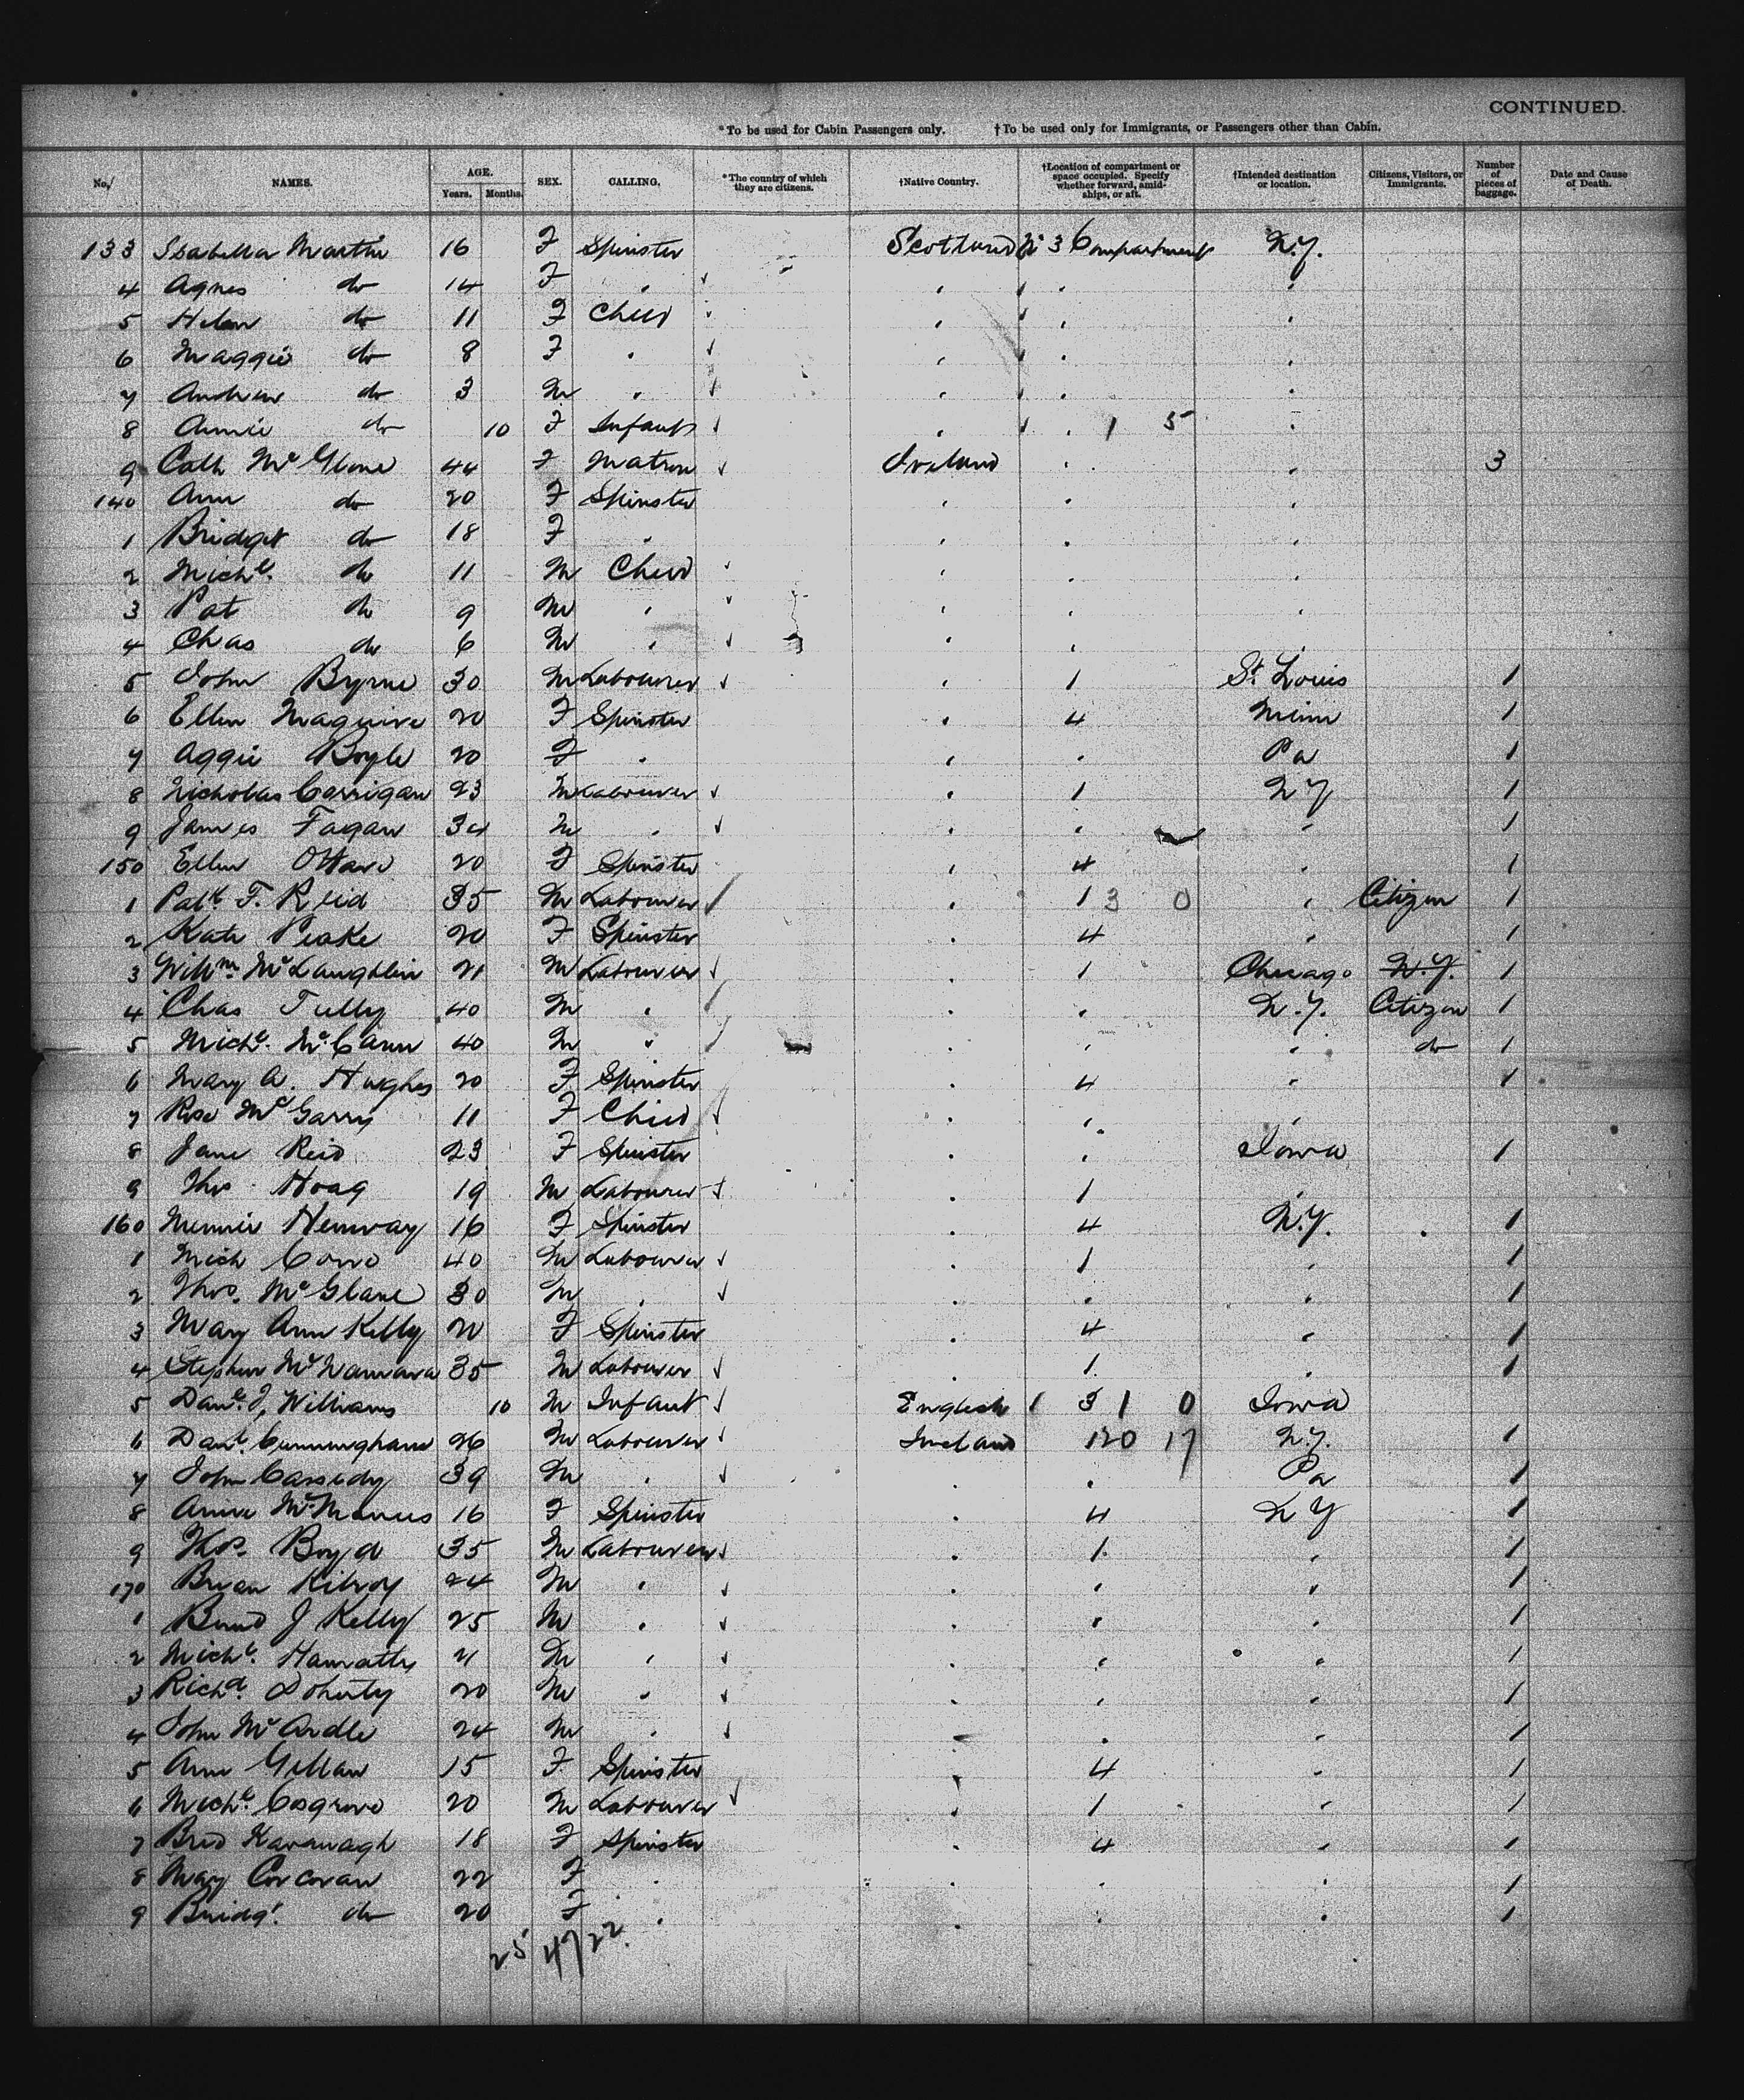 CONTINUED.
*To be used for Cabin Passengers only. †To be used only for Immigrants, or Passengers other than Cabin.
No. NAMES. AGE. Years. Months. SEX. CALLING. *The country of which they are citizens. †Native Country. †Location of compartment or space occupied. Specify whether forward, amidships, or aft. †Intended destination or location. Citizens, Visitors, or Immigrants. Number of pieces of baggage. Date and Cause of Death.
133 Isabella Martin 16 F Spinster Scotland No 3 Compartment N.Y.
4 Agnes do 14 F "
5 Helen do 11 F Child
6 Maggie do 8 F "
7 Andrew do 3 M "
8 Annie do 10 F Infant " 1 5
9 Cath McGlone 44 F Matron Ireland " " 3
140 Ann do 20 F Spinster
1 Bridget do 18 F "
2 Michl. do 11 M Child
3 Pat do 9 M "
4 Chas do 6 M "
5 John Byrne 30 M Labourer " 1 St. Louis 1
6 Ellen Maguire 20 F Spinster " 4 Minn 1
7 Aggie Boyle 20 F " " " Pa 1
8 Nicholas Corrigan 23 M Labourer " 1 N Y 1
9 James Fagan 34 M " " " " 1
150 Ellen 20 F Spinster " 4 " 1
1 Patk. F. Reid 35 M Labourer " 1 3 0 " Citizen 1
2 Kate Peake 20 F Spinster " 4 " 1
3 Willm. McLaughlin 21 M Labourer " 1 Chicago N.Y. 1
4 Chas Tully 40 M " " " N.Y. Citizen 1
5 Michl. McCann 40 M " " " " do 1
6 Mary A. Hughes 20 F Spinster " 4 " 1
7 Rose McGarry 11 F Child " " "
8 Jane Reid 23 F Spinster " " Iowa 1
9 Thos Hoag 19 M Labourer " 1 "
160 Minnie Hemway 16 F Spinster " 4 N.Y. 1
1 Mich 40 M Labourer " 1 " 1
2 Thos. McGlane 30 M " " " " 1
3 Mary Ann Kelly 20 F Spinster " 4 " 1
4 Stephen McNamara 35 M Labourer " 1 " 1
5 Danl. J. Williams 10 M Infant English 1 3 1 0 Iowa
6 Danl. Cunningham 26 M Labourer Ireland 120 17 N.Y. 1
7 John Cassedy 39 M " " " Pa 1
8 Annie McManus 16 F Spinster " 4 N Y 1
9 Thos. Boyd 35 M Labourer " 1 " 1
170 Brian Kilroy 24 M " " " " 1
1 Bernd J Kelly 25 M " " " " 1
2 Michl. Hanratty 21 M " " " " 1
3 Richd. Doherty 20 M " " " " 1
4 John McArdle 24 M " " " " 1
5 Ann Gillan 15 F Spinster " 4 " 1
6 Michl. Cosgrove 20 M Labourer " 1 " 1
7 Brid Kavanagh 18 F Spinster " 4 " 1
8 Mary Corcoran 22 F " " " " 1
9 Bridgt. do 20 F " " " " 1
25 47 22